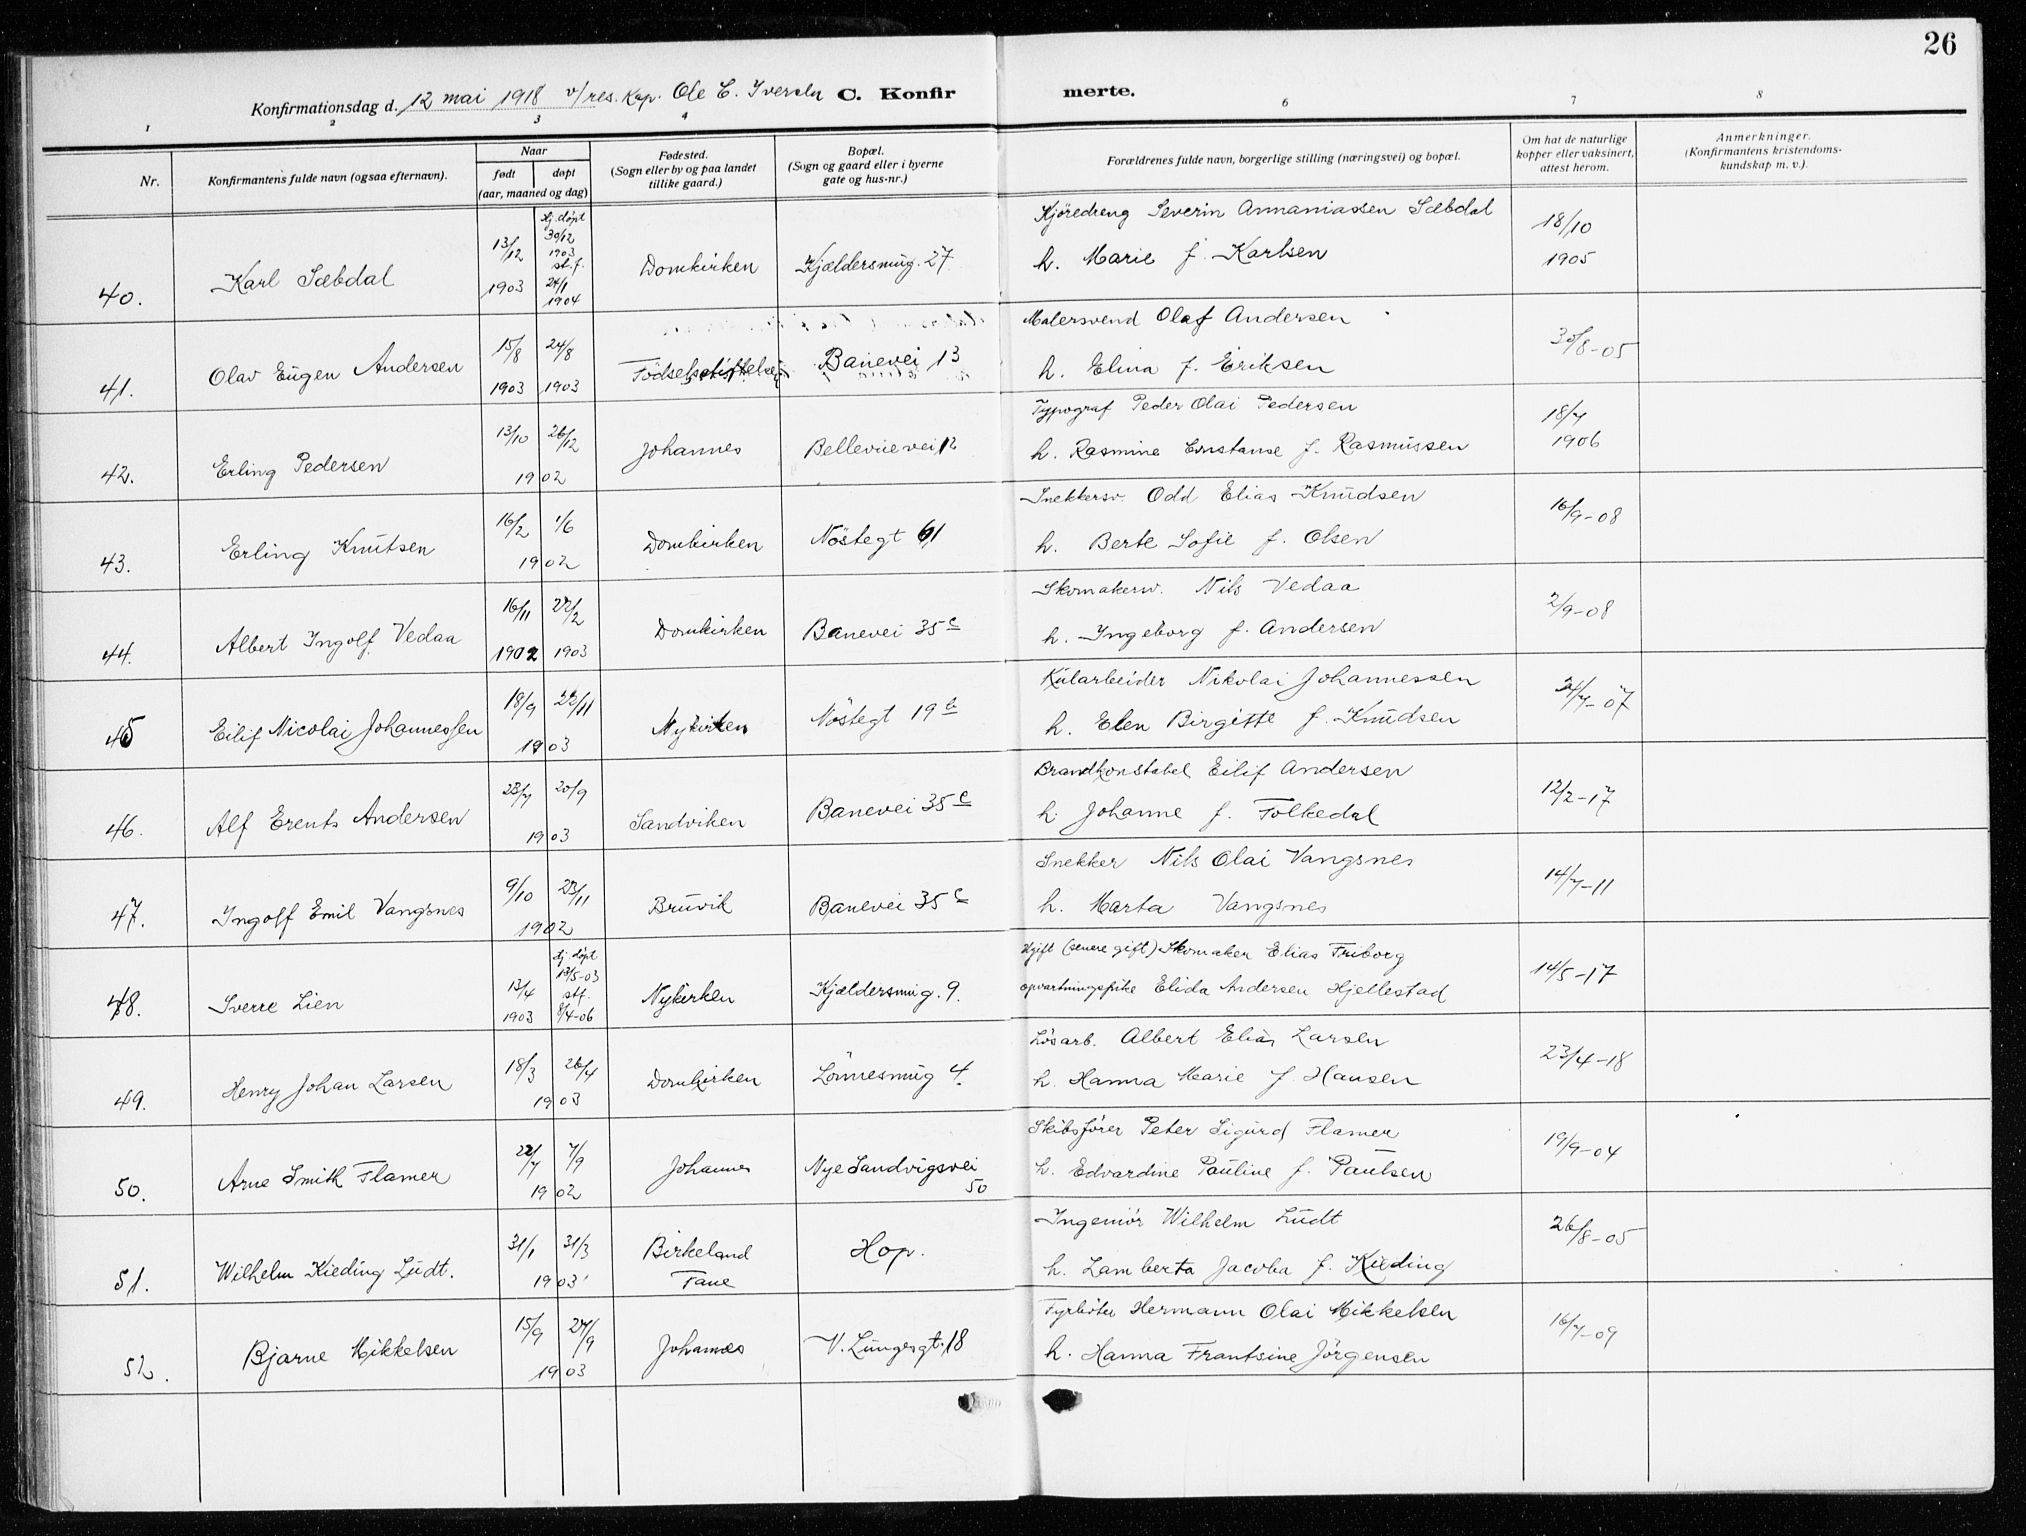 26
Konfirmationsdag d. 12 mai 1918 v/res. Kap. Ole C. Iversen C. Konfirmerte.
1 2 3 4 6 7 8
Nr. Konfirmantens fulde navn (ogsaa efternavn). Naar født døpt (aar, maaned og dag) Fødested. (Sogn eller by og paa landet tillike gaard.) Bopæl. (Sogn og gaard eller i byerne gate og hus-nr.) Forældrenes fulde navn, borgerlige stilling (næringsvei) og bopæl. Om hat de naturlige kopper eller vaksinert, attest herom. Anmerkninger. (Konfirmantens kristendomskundskap m. v.).
40. Karl Sæbdal 13/12 1903 hj. døpt 30/12 1903 st.f. 24/1 1904 Domkirken Kjældersmug. 27 Kjøredreng Severin Annaniassen Sæbdal
h. Marie f. Karlsen 18/10 1905
41. Olav Eugen Andersen 15/8 1903 24/8 1903 Fødselsstiftelsen Banevei 13 Malersvend Olaf Andersen
h. Elina f. Eriksen 30/8-05
42. Erling Pedersen 13/10 26/12 1902 Johannes Bellevuevei 12 Typograf Peder Olai Pedersen
h. Rasmine Constanse f. Rasmussen 18/7 1906
43. Erling Knutsen 16/2 1/6 1902 Domkirken Nöstegt 61 Snekkersv. Odd Elias Knudsen
h. Berte Sofie f. Olsen 16/9-08
44. Albert Ingolf Vedaa 16/11 1902 22/2 1903 Domkirken Banevei 35 c Skomakersv. Nils Vedaa
h. Ingeborg f. Andersen 2/9-08
45 Eilif Nicolai Johannessen 18/9 22/11 1903 Nykirken Nöstegt 19 b Kularbeider Nikolai Johannessen
h. Elen Birgitte f. Knudsen 24/7-07
46. Alf Erents Andersen 23/7 20/9 1903 Sandviken Banevei 35 c Brandkonstabel Eilif Andersen
h. Johanne f. Folkedal 12/2-17
47. Ingolf Emil Vangsnes 9/10 23/11 1902 Bruvik Banevei 35 c Snekker Nils Olai Vangsnes
h. Marta Vangsnes 14/7-11
48. Sverre Lien 13/4 1903 hj. døpt 13/5-03 stf. 8/4-06 Nykirken Kjældersmug. 9. Ugift (senere gift) Skomaker Elias Friborg
opvartningspike Elida Andersen Hjellestad 14/5-17
49. Henry Johan Larsen 18/3 26/4 1903 Domkirken Lönnesmug 4. Løsarb. Albert Elias Larsen
h. Hanna Marie f. Hansen 23/4-18
50. Arne Smith Flamer 22/7 7/9 1902 Johannes Nye Sandvigsvei 50 Skibsfører Peter Sigurd Flamer
h. Edvardine Pauline f. Paulsen 19/9-04
51. Wilhelm Kieding Ludt. 31/1 31/3 1903 Birkeland Fane Hop. Ingeniør Wilhelm Ludt
h. Lamberta Jacoba f. Kieding 26/8-05
52. Bjarne Mikkelsen 15/9 27/9 1903 Johannes V. Lungegt. 18 Fyrbøter Hermann Olai Mikkelsen
h. Hanna Frantsine Jörgensen 16/7-09